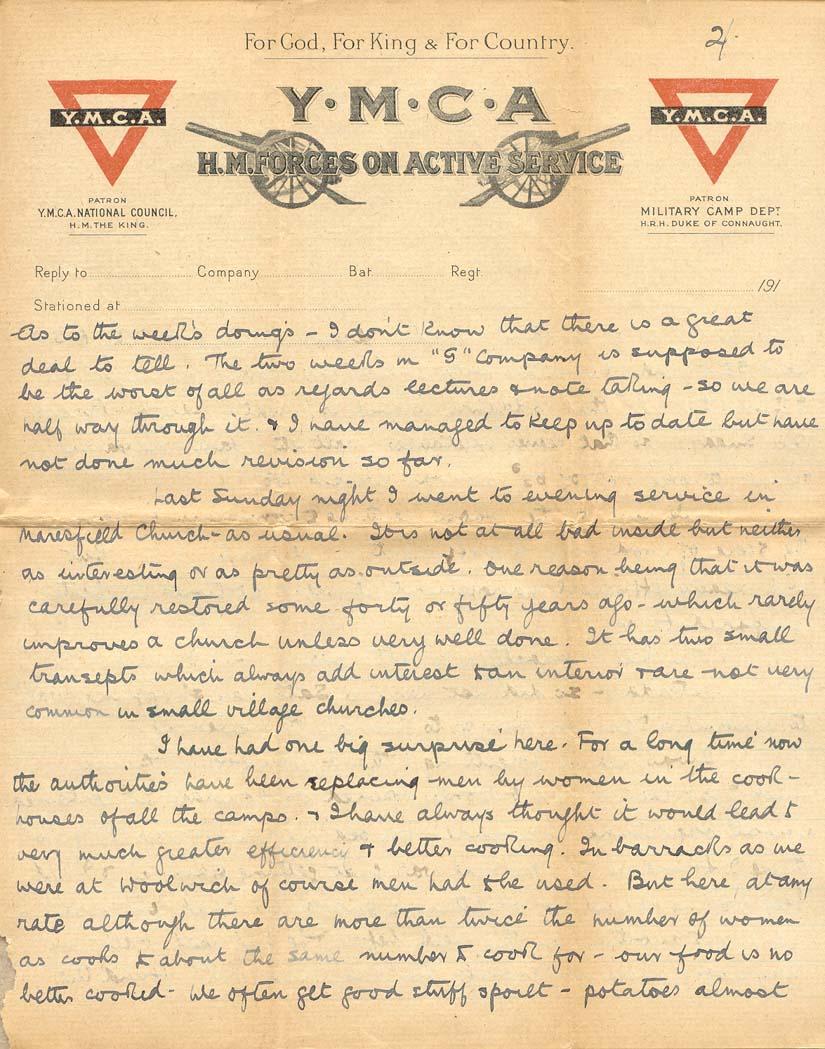 For God, For King & For Country.
2/.
Y·M·C·A
H.M. FORCES ON ACTIVE SERVICE
Y.M.C.A.
PATRON
Y.M.C.A. NATIONAL COUNCIL,
H.M. THE KING.
Y.M.C.A.
PATRON
MILITARY CAMP DEPT.
H.R.H. DUKE OF CONNAUGHT.
Reply to Company Bat. Regt.
191
Stationed at
As to the week's doings - I don't know that there is a great
deal to tell. The two weeks in "G" Company is supposed to
be the worst of all as regards lectures & note taking - so we are
half way through it. & I have managed to keep up to date but have
not done much revision so far.
Last Sunday night I went to evening service in
Maresfield Church - as usual. It is not at all bad inside but neither
as interesting or as pretty as outside. One reason being that it was
carefully restored some forty or fifty years ago - which rarely
improves a church unless very well done. It has two small
transepts which always add interest to an interior & are not very
common in small village churches.
I have had one big surprise here. For a long time now
the authorities have been replacing men by women in the cook-
houses of all the camps. & I have always thought it would lead to
very much greater efficiency & better cooking. In barracks as we
were at Woolwich of course men had to be used. But here, at any
rate although there are more than twice the number of women
as cooks & about the same number to cook for - our food is no
better cooked - We often get good stuff spoilt - potatoes almost